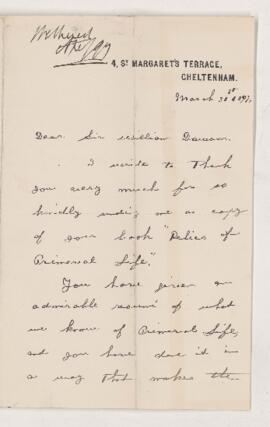 Wethered
4, St. MARGARET'S TERRACE,
CHELTENHAM.
March 31st 1897.
Dear Sir William Dawson.
I write to thank
you very much for so
kindly sending me a copy
of your book "Relics of
Primeval Life".
You have given an
admirable resumé of what
we know of Primeval Life,
and you have done it in
a way that makes the